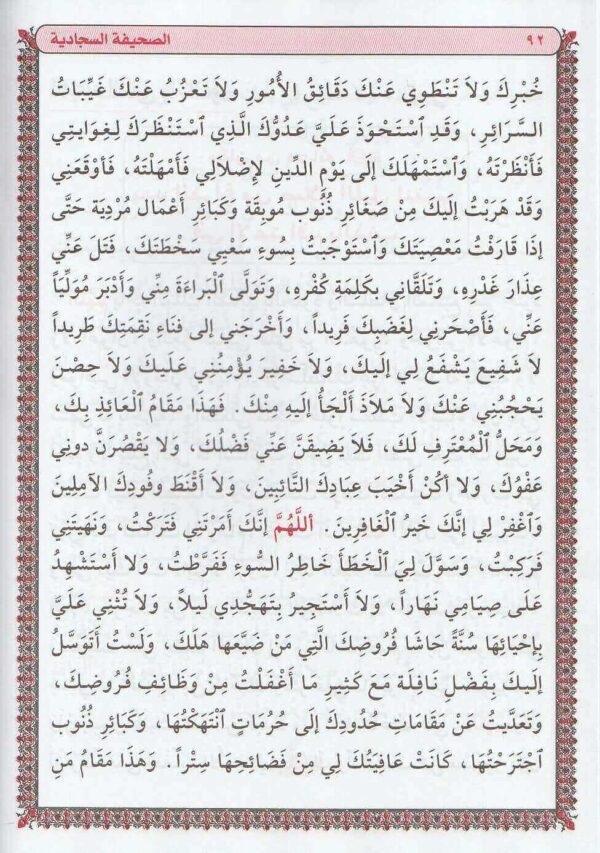 ٩٢
الصحيفة السجادية
خُبْرِكَ وَلاَ تَنْطَوِي عَنْكَ دَقَائِقُ الأُمُورِ وَلاَ تَعْزُبُ عَنْكَ غَيِّبَاتُ
السَّرَائِرِ، وَقَدِ ٱسْتَحْوَذَ عَلَيَّ عَدُوُّكَ الَّذِي ٱسْتَنْظَرَكَ لِغِوَايَتِي
فَأَنْظَرْتَهُ، وَٱسْتَمْهَلَكَ إلَى يَوْمِ الدِّينِ لإضْلاَلِي فَأَمْهَلْتَهُ، فَأَوْقَعَنِي
وَقَدْ هَرَبْتُ إلَيكَ مِنْ صَغَائِرِ ذُنُوبٍ مُوبِقَةٍ وَكَبَائِرِ أَعْمَالٍ مُرْدِيَةٍ حَتَّى
إذَا قَارَفْتُ مَعْصِيَتَكَ وَٱسْتَوْجَبْتُ بِسُوءِ سَعْيِي سَخْطَتَكَ، فَتَلَ عَنِّي
عِذَارَ غَدْرِهِ، وَتَلَقَّانِي بِكَلِمَةِ كُفْرِهِ، وَتَوَلَّى ٱلبَرَاءَةَ مِنِّي وَأَدْبَرَ مُوَلِّيَاً
عَنِّي، فَأَصْحَرَنِي لِغَضَبِكَ فَرِيداً، وَأَخْرَجَني إلى فنَاءِ نَقْمَتِكَ طَرِيداً
لاَ شَفِيعَ يَشْفَعُ لِي إلَيكَ، وَلاَ خَفِيرَ يُؤْمِنُنِي عَلَيكَ وَلاَ حِصْنَ
يَحْجُبُنِي عَنْكَ وَلاَ مَلاَذَ أَلْجَأُ إلَيهِ مِنْكَ. فَهَذَا مَقَامُ ٱلْعَائِذِ بِكَ،
وَمَحَلُّ ٱلْمُعْتَرِفِ لَكَ، فَلاَ يَضِيقَنَّ عَنِّي فَضْلُكَ، وَلا يَقْصُرَنَّ دونِي
عَفْوُكَ، وَلا أكُنْ أَخْيَبَ عِبَادِكَ التَّائِبِينَ، وَلاَ أَقْنَطَ وفُودِكَ الآمِلِينَ
وَٱغْفِرْ لِي إنَّكَ خَيرُ ٱلْغَافِرِينَ. أَللَّهُمَّ إنَّكَ أَمَرْتَنِي فَتَرَكْتُ، وَنَهَيتَنِي
فَرَكِبْتُ، وَسَوَّلَ لِيَ ٱلْخَطَأَ خَاطِرُ السُّوءِ فَفَرَّطْتُ، وَلا أَسْتَشْهِدُ
عَلَى صِيَامِي نَهَاراً، وَلاَ أَسْتَجِيرُ بِتَهَجُّدِي لَيلاً، وَلاَ تُثْنِي عَلَيَّ
بِإحْيَائِهَا سُنَّةٌ حَاشَا فُرُوضِكَ الَّتِي مَنْ ضَيَّعَها هَلَكَ، وَلَسْتُ أَتَوَسَّلُ
إلَيكَ بِفَضْلِ نَافِلَةٍ مَعَ كَثِيرِ مَا أَغْفَلْتُ مِنْ وَظَائِفِ فُرُوضِكَ،
وَتَعَدَّيتُ عَنْ مَقَامَاتِ حُدُودِكَ إلَى حُرُمَاتٍ ٱنْتَهَكْتُهَا، وَكَبَائِرِ ذُنُوبٍ
ٱجْتَرَحْتُهَا، كَانَتْ عَافِيَتُكَ لِي مِنْ فَضَائِحِهَا سِتْراً. وَهَذَا مَقَامُ مَنِ